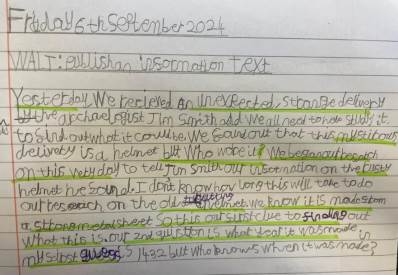 Friday 6th September 2024
WALT: publish an information text
Yesterday We recieved an unexpected, strange delivery
by the archaeologist Jim Smith and we all need to help study it
to find out what it could be. We found out that this mysterious
delivery is a helmet but Who wore it? We began our research
on this very day to tell Jim Smith our information on the rusty
helmet we found. I don't know how long this will take to do
our research on the old helmet. We know it is made from
a strong metal sheet So this our first clue to finding out
What this is. our 2nd question is what year it was made in
my first guess is 1432 but who knows when it was made?